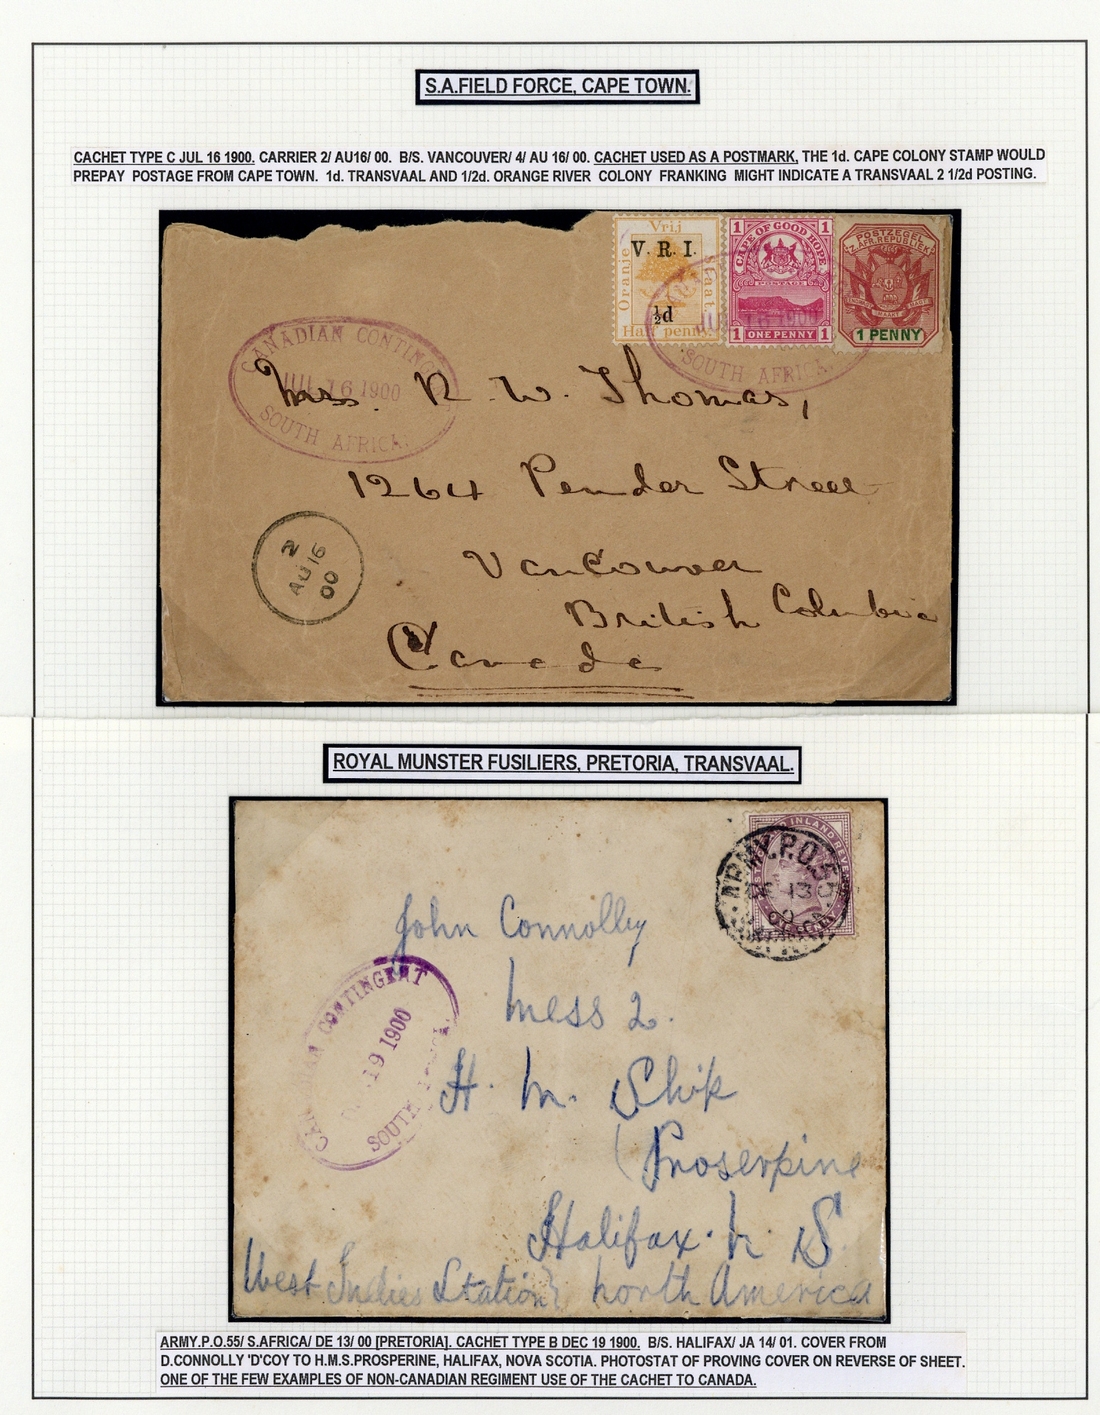 S.A.FIELD FORCE, CAPE TOWN.
CACHET TYPE C JUL 16 1900. CARRIER 2/ AU16/ 00. B/S. VANCOUVER/ 4/ AU 16/ 00. CACHET USED AS A POSTMARK, THE 1d. CAPE COLONY STAMP WOULD
PREPAY POSTAGE FROM CAPE TOWN. 1d. TRANSVAAL AND 1/2d. ORANGE RIVER COLONY FRANKING MIGHT INDICATE A TRANSVAAL 2 1/2d POSTING.
Oranje Vrij Staat
V. R. I.
½d
Half penny
1 CAPE OF GOOD HOPE 1
POSTAGE
1 ONE PENNY 1
POSTZEGEL
Z. AFR. REPUBLIEK
1 PENNY
1900
SOUTH AFRICA.
CANADIAN CONTINGENT
JUL 16 1900
SOUTH AFRICA.
Mrs. R. W. Thomas,
1264 Pender Street
Vancouver
British Columbia
Canada
2
AU 16
00
ROYAL MUNSTER FUSILIERS, PRETORIA, TRANSVAAL.
INLAND REVENUE
ARMY.P.O.55
DE 13
00
John Connolley
Mess 2.
H. M. Ship
(Proserpine
Halifax. N. S.
West Indies Station} North America
CANADIAN CONTINGENT
19 1900
SOUTH
ARMY.P.O.55/ S.AFRICA/ DE 13/ 00 [PRETORIA]. CACHET TYPE B DEC 19 1900. B/S. HALIFAX/ JA 14/ 01. COVER FROM
D.CONNOLLY 'D'COY TO H.M.S.PROSPERINE, HALIFAX, NOVA SCOTIA. PHOTOSTAT OF PROVING COVER ON REVERSE OF SHEET.
ONE OF THE FEW EXAMPLES OF NON-CANADIAN REGIMENT USE OF THE CACHET TO CANADA.